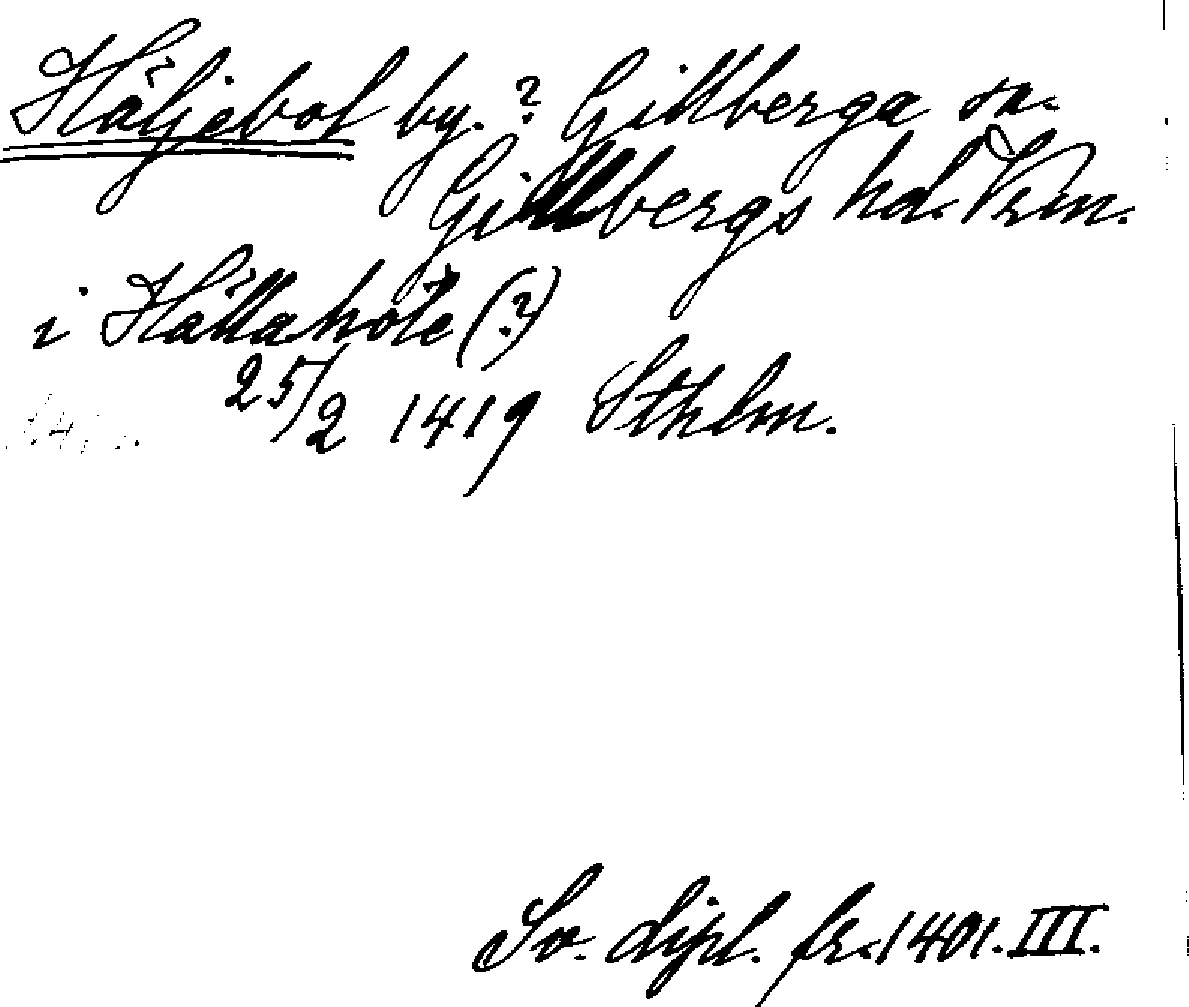 Häljebol by. ? Gillberga sn.
Gillbergs hd. Vrm.
i Hällaböle (?)
25/2 1419 Sthlm.
Sv. dipl. fr. 1401. III.